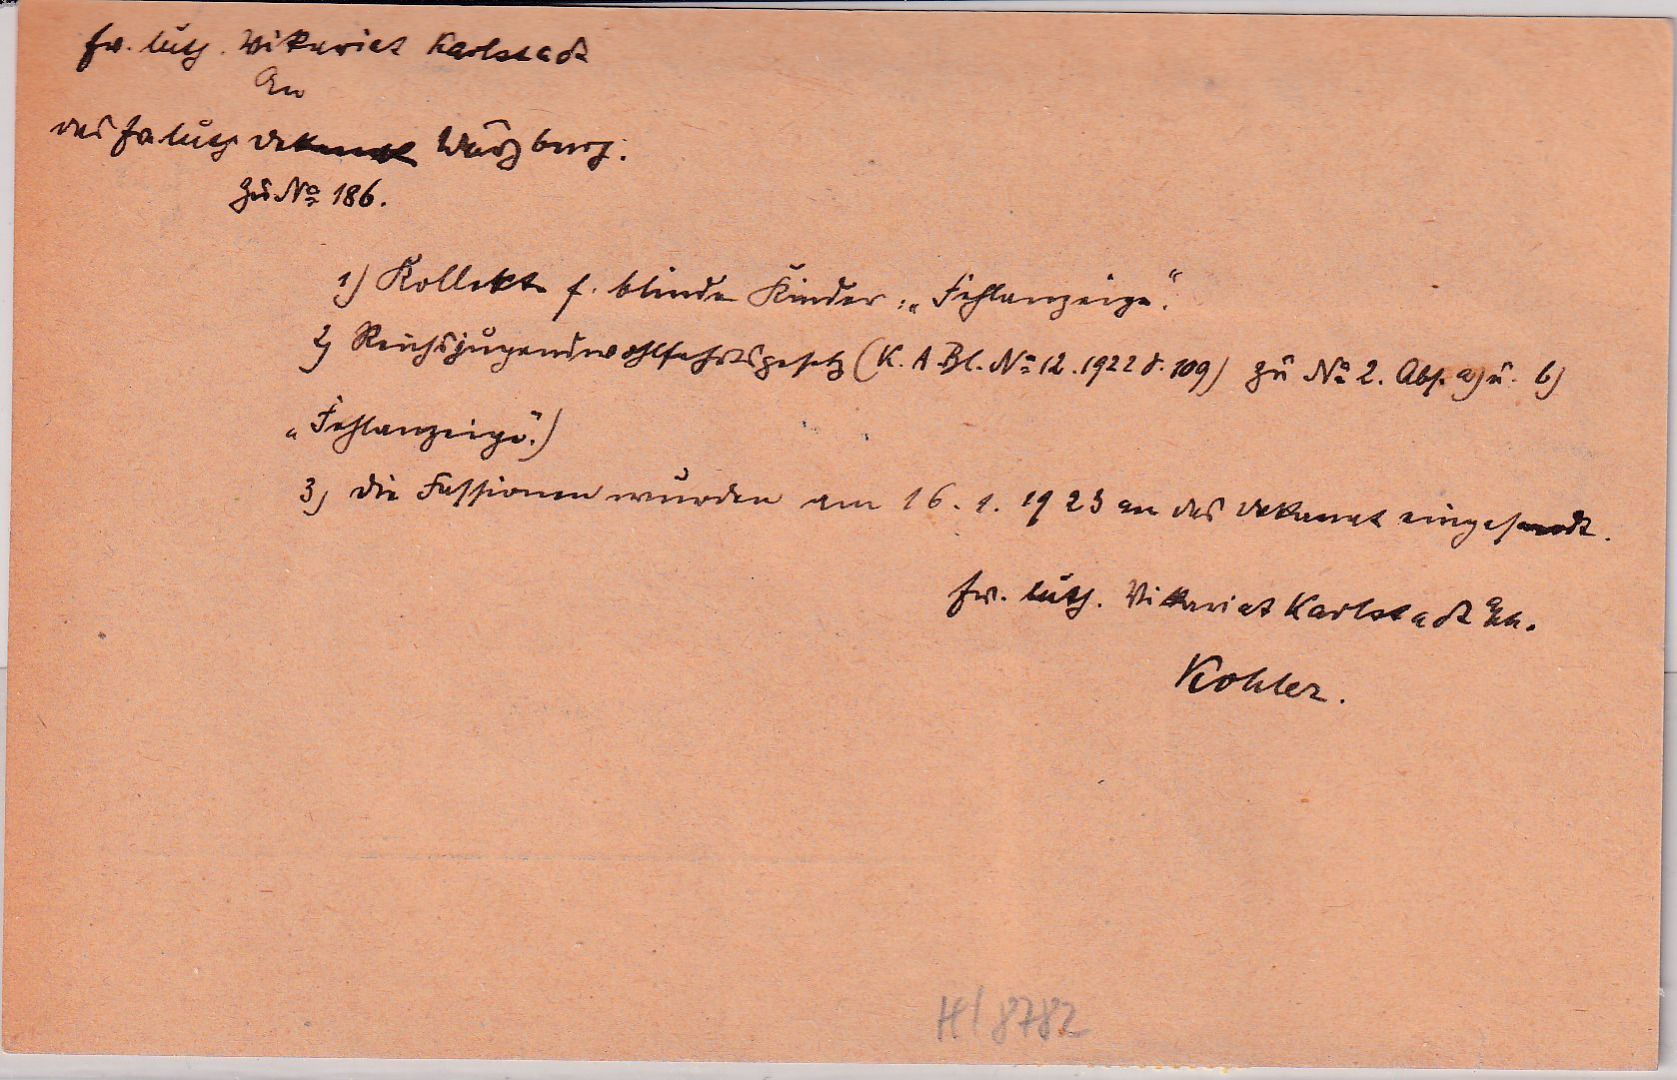 Ev. luth. Vikariat Karlstadt
An
das Ev. luth. Dekanat Würzburg.
Zu No 186.
1) Kollekte f. blinde Kinder: „Fehlanzeige".
2) Reichsjugendwohlfahrtsgesetz (K. A. Bl. No 12. 1922 S. 109) zu No 2. Abs. a) u. b)
„Fehlanzeige".)
3) Die Fassionen wurden am 16. 1. 1923 an das Dekanat eingesandt.
Ev. luth. Vikariat Karlstadt
Kohler.
H/ 8782